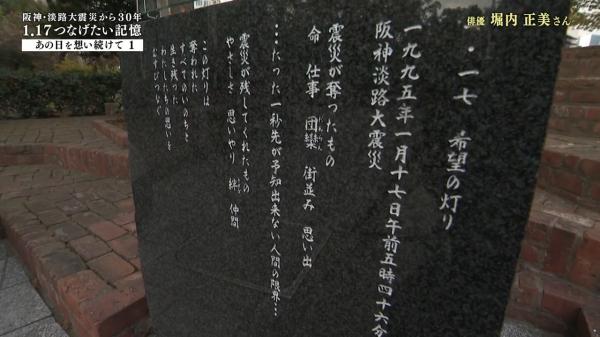 阪神・淡路大震災から30年
1.17つなげたい記憶
あの日を想い続けて 1
俳優 堀内 正美さん
・一七 希望の灯り
一九九五年一月十七日午前五時四十六分
阪神淡路大震災
震災が奪ったもの
命 仕事 団欒 街並み 思い出
…たった一秒先が予知出来ない人間の限界…
震災が残してくれたもの
やさしさ 思いやり 絆 仲間
この灯りは
奪われた
すべてのいのちと
生き残った
わたしたちの思いを
むすびつなぐ